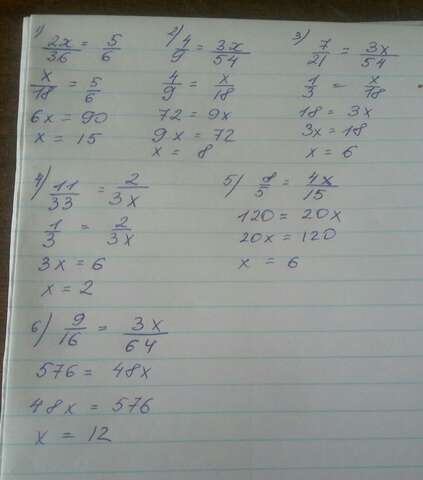 1) 2x/36 = 5/6
x/18 = 5/6
6x = 90
x = 15
2) 4/9 = 3x/54
4/9 = x/18
72 = 9x
9x = 72
x = 8
3) 7/21 = 3x/54
1/3 = x/18
18 = 3x
3x = 18
x = 6
4) 11/33 = 2/3x
1/3 = 2/3x
3x = 6
x = 2
5) 8/5 = 4x/15
120 = 20x
20x = 120
x = 6
6) 9/16 = 3x/64
576 = 48x
48x = 576
x = 12